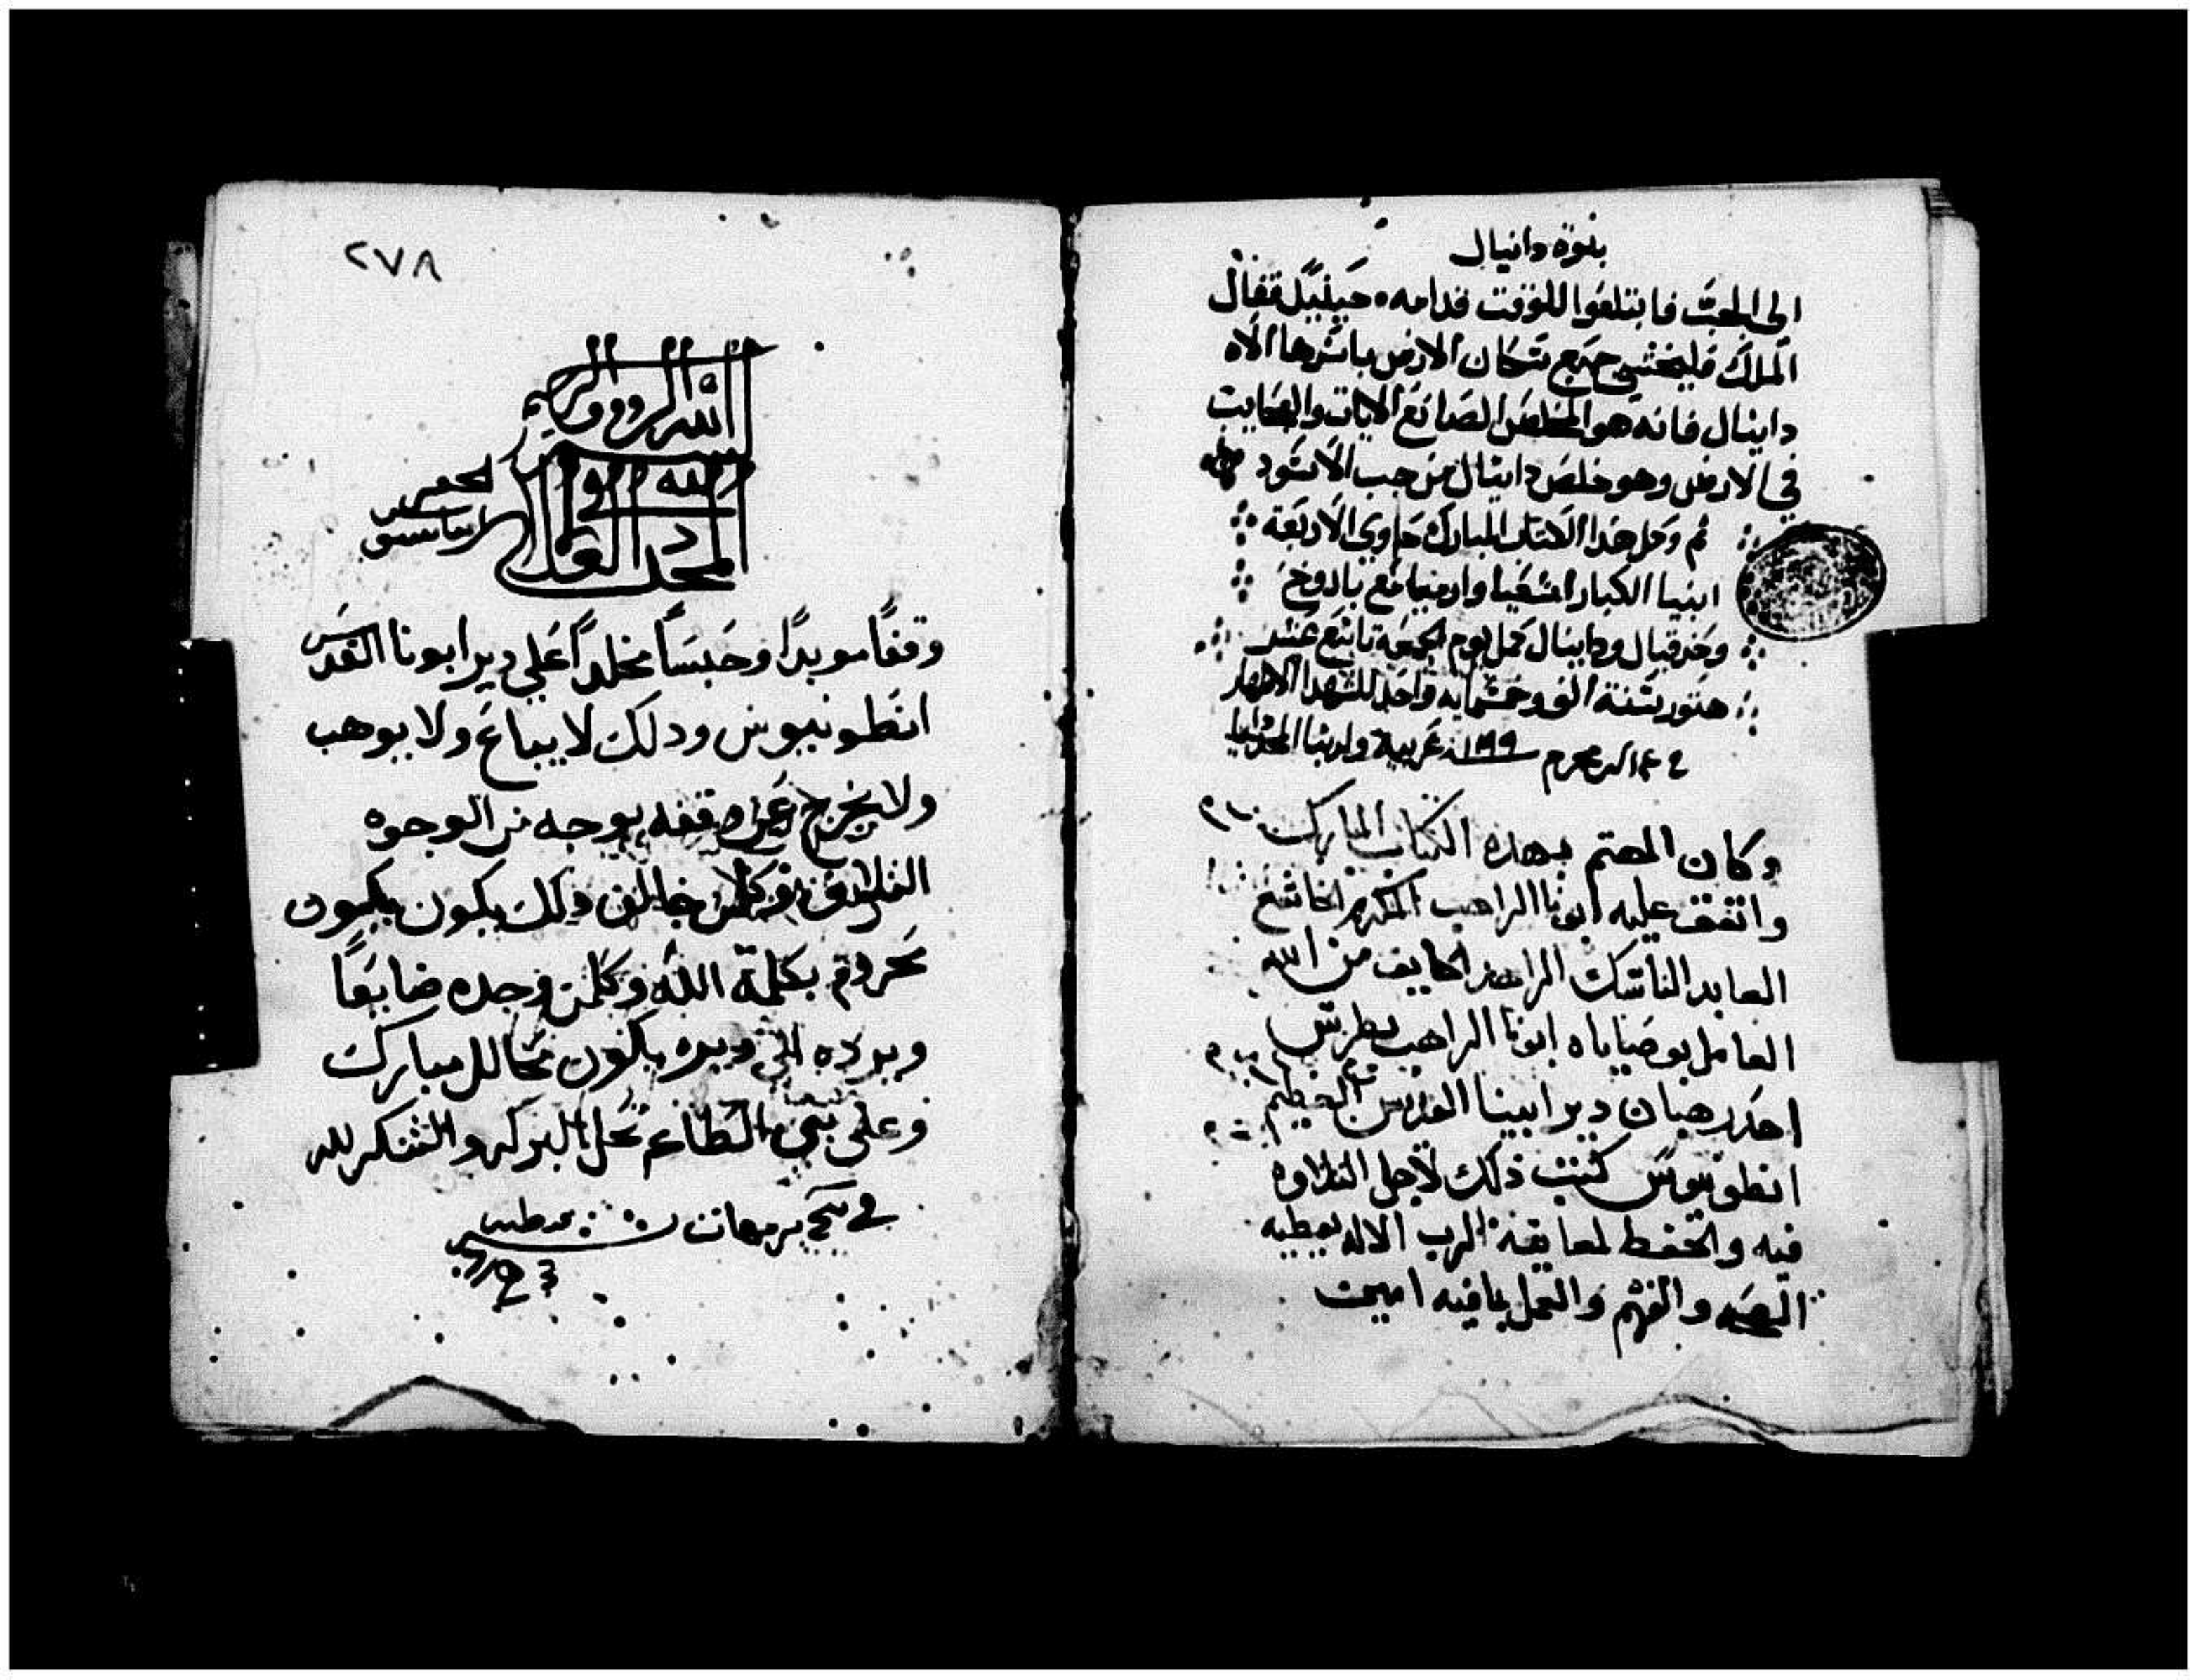 بنوة دانيال
الى الجب فابتلعوا للوقت قدامه حينيذ فقال
الملك فليخشى جميع سكان الارض باسرها الاه
دانيال فانه هو المخلص الصانع الايات والعجايب
في الارض وهو خلص دانيال من جب الاسود
تم وكمل هدا الكتاب المبارك حاوي الاربعة
انبيا الكبار اشعيا وارميا مع باروخ
وحزقيال ودانيال كمل يوم الجمعة تاسع عشر
هتور سنة الف وخمسمايه واحد للشهدا الاطهار
محرم ١١٩٩ عربية
وكان المهتم بهده الكتاب المبارك
واتفق عليه ابونا الراهب المكرم الخاشع
العابد الناسك الزاهد الخايف من الله
العامل بوصاياه ابونا الراهب بطرس
احد رهبان دير ابينا القديس العظيم
انطونيوس كتب ذلك لاجل التلاوه
فيه والتحفظ لمعانيه الرب الاله يعطيه
والفهم والعمل بما فيه امين
٢٧٨
الله الرووف الرحيم
لله
المجد
الحقير
وقفًا موبدًا وحبسًا مخلدًا على دير ابونا القديس
انطونيوس ودلك لا يباع ولا يوهب
ولا يخرج عن وقفه بوجه من الوجوه
التلاف وكلمن خالف ذلك يكون يكون
محروم بكلمة الله وكلمن وجده ضايعًا
ويرده الى ديره يكون محالل مبارك
وعلى بني الطاعه تحل البركه والشكر لله
في برمهات سنة